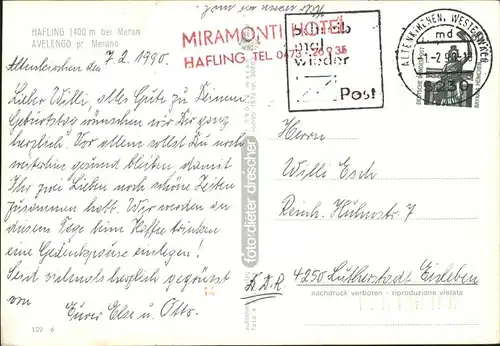 HAFLING 1400 m bei Meran
AVELENGO pr Merano
MIRAMONTI HOTEL
HAFLING TEL 0473
schreib
mal
wieder
Post
ALTENKIRCHEN, WESTERWALD
md
5230
Altenkirchen den 7.2.1990.
Lieber Willi, alles Gute zu Deinem
Geburtstag wünschen wir Dir ganz
herzlich. Vor allem sollst Du noch
weiterhin gesund bleiben, damit
Ihr zwei Lieben noch schöne Zeiten
zusammen habt. Wir werden an
diesem Tage beim Kaffee trinken
eine Gedenkpause einlegen!
Seid vielmals herzlich gegrüsst
von
Eurer Else u. Otto.
Herrn
Willi Esch
Reinh. Huhnstr. 7
D.D.R. 4250 Lutherstadt Eisleben
nachdruck verboten - riproduzione vietata
foto dieter drescher
109 6